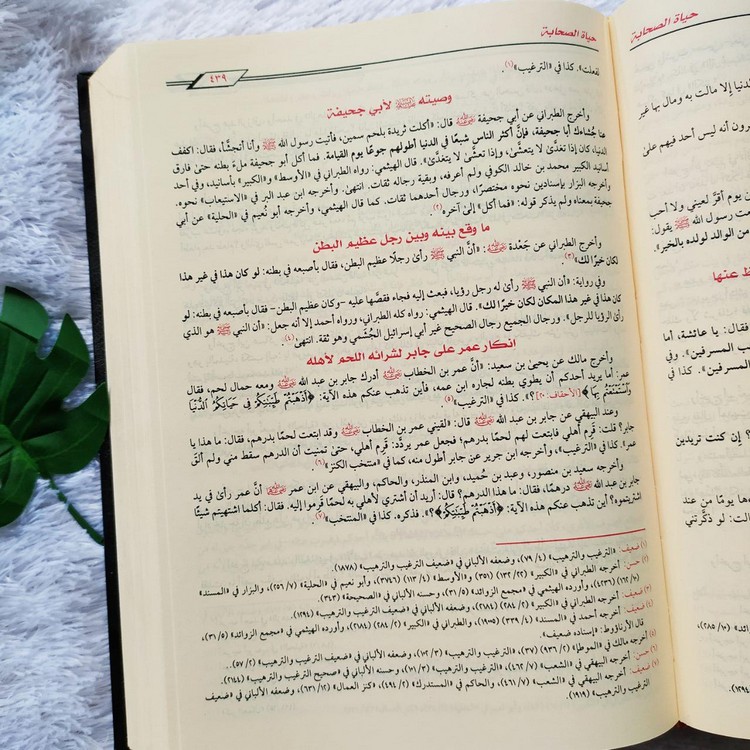 حياة الصحابة
٤٣٩
لفعلت». كذا في «الترغيب»(١).
وصيته ﷺ لأبي جحيفة
وأخرج الطبراني عن أبي جحيفة رضي الله عنه قال: «أكلت ثريدة بلحم سمين، فأتيت رسول الله ﷺ وأنا أتجشَّأ، فقال: اكفف
عنا جُشاءك أبا جحيفة، فإنَّ أكثر الناس شبعًا في الدنيا أطولهم جوعًا يوم القيامة. فما أكل أبو جحيفة ملءَ بطنه حتى فارق
الدنيا، كان إذا تغدَّىٰ لا يتعشَّىٰ، وإذا تعشَّىٰ لا يتغدَّىٰ». قال الهيثمي: رواه الطبراني في «الأوسط» و«الكبير» بأسانيد، وفي أحد
أسانيد الكبير محمد بن خالد الكوفي ولم أعرفه، وبقية رجاله ثقات. انتهىٰ. وأخرجه ابن عبد البر في «الاستيعاب» نحوه.
وأخرجه البزار بإسنادين نحوه مختصرًا، ورجال أحدهما ثقات. كما قال الهيثمي، وأخرجه أبو نُعيم في «الحلية» عن أبي
جحيفة بمعناه ولم يذكر قوله: «فما أكل» إلىٰ آخره(٢).
ما وقع بينه وبين رجل عظيم البطن
وأخرج الطبراني عن جَعْدة رضي الله عنه: «أنَّ النبي ﷺ رأىٰ رجلًا عظيم البطن، فقال بأصبعه في بطنه: لو كان هذا في غير هذا
لكان خيرًا لك»(٣).
وفي رواية: «أن النبي ﷺ رأىٰ له رجل رؤيا، فبعث إليه فجاء فقصَّها عليه –وكان عظيم البطن– فقال بأصبعه في بطنه: لو
كان هذا في غير هذا المكان لكان خيرًا لك». قال الهيثمي: رواه كله الطبراني، ورواه أحمد إلا أنه جعل: «أن النبي ﷺ هو الذي
رأىٰ الرؤيا للرجل». ورجال الجميع رجال الصحيح غير أبي إسرائيل الجُشَمي وهو ثقة. انتهىٰ(٤).
انكار عمر على جابر لشرائه اللحم لأهله
وأخرج مالك عن يحيىٰ بن سعيد: «أنَّ عمر بن الخطاب رضي الله عنه أدرك جابر بن عبد الله رضي الله عنه ومعه حمال لحم، فقال
عمر: أما يريد أحدكم أن يطوي بطنه لجاره ابن عمه، فأين تذهب عنكم هذه الآية: ﴿أَذْهَبْتُمْ طَيِّبَٰتِكُمْ فِي حَيَاتِكُمُ ٱلدُّنْيَا
وَٱسْتَمْتَعْتُم بِهَا﴾ [الأحقاف: ٢٠]؟». كذا في «الترغيب»(٥).
وعند البيهقي عن جابر بن عبد الله رضي الله عنه قال: «لقيني عمر بن الخطاب رضي الله عنه وقد ابتعت لحمًا بدرهم، فقال: ما هذا يا
جابر؟ قلت: قَرِم أهلي فابتعت لهم لحمًا بدرهم؛ فجعل عمر يردِّد: قَرِم أهلي، حتىٰ تمنيت أن الدرهم سقط مني ولم ألقَ
عمر». كذا في «الترغيب»، وأخرجه ابن جرير عن جابر أطول منه، كما في «منتخب الكنز»(٦).
وأخرجه سعيد بن منصور، وعبد بن حُميد، وابن المنذر، والحاكم، والبيهقي عن ابن عمر رضي الله عنهما أنَّ عمر رأىٰ في يد
جابر بن عبد الله رضي الله عنه درهمًا، فقال: ما هذا الدرهم؟ قال: أريد أن أشتري لأهلي به لحمًا قَرِموا إليه. فقال: أكلما اشتهيتم شيئًا
اشتريتموه؟ أين تذهب عنكم هذه الآية: ﴿أَذْهَبْتُمْ طَيِّبَٰتِكُمْ﴾؟». فذكره. كذا في «المنتخب»(٧).
(١) ضعيف: «الترغيب والترهيب» (٤/ ٧٩)، وضعفه الألباني في «ضعيف الترغيب والترهيب» (١٨٧٨).
(٢) حسن: أخرجه الطبراني في «الكبير» (٢٢/ ١٣٢) (٣٥١) و«الأوسط» (٤/ ١١٣) (٣٧٤٦)، وأبو نعيم في «الحلية» (٧/ ٢٥٦)، والبزار في «المسند»
(١٠/ ١٦٢) (٤٢٣٦)، وأورده الهيثمي في «مجمع الزوائد» (٥/ ٣١)، وحسنه الألباني في «الصحيحة» (٣٤٣).
(٣) ضعيف: أخرجه الطبراني في «الكبير» (٢/ ٢٨٤) (٢١٨٤)، وضعفه الألباني في «ضعيف الترغيب والترهيب» (١٢٩٤).
(٤) ضعيف: أخرجه أحمد في «المسند» (٤/ ٣٣٩) (١٩٠٥)، والطبراني في «الكبير» (٢/ ٢٨٤) (٢١٨٤)، وأورده الهيثمي في «مجمع الزوائد» (٥/ ٣١)،
قال الأرناؤوط: «إسناده ضعيف».
أخرجه مالك في «الموطأ» (٢/ ٩٣٦) (٣٧)، «الترغيب والترهيب» (٣/ ١٠٢)، وضعفه الألباني في «ضعيف الترغيب والترهيب» (٢/ ٥٧).
(٦) حسن: أخرجه البيهقي في «الشعب» (٧/ ٤٦٢)، «الترغيب والترهيب» (٣/ ١٠١)، وحسنه الألباني في «صحيح الترغيب والترهيب» (٢١٤٤)
(٧) ضعيف: أخرجه البيهقي في «الشعب» (٧/ ٤٦١)، والحاكم في «المستدرك» (٢/ ٤٩٤)، «كنز العمال» (١٢/ ٦٣١)، وضعفه الألباني في «ضعيف
الترغيب والترهيب» (١٩١٩).
حياة الصحابة
الدنيا إلا مالت به ومال بها غير
يرون أنه ليس أحد فيهم على
من يوم أقرَّ لعيني ولا أحب
سمعت رسول الله ﷺ يقول:
من الوالد لولده بالخير».
فقال: يا عائشة، أما
المسرفين». وفي
المسرفين». كذا في
؟ إن كنت تريدين
يومًا من عند
قالت: لو ذكَّرتني